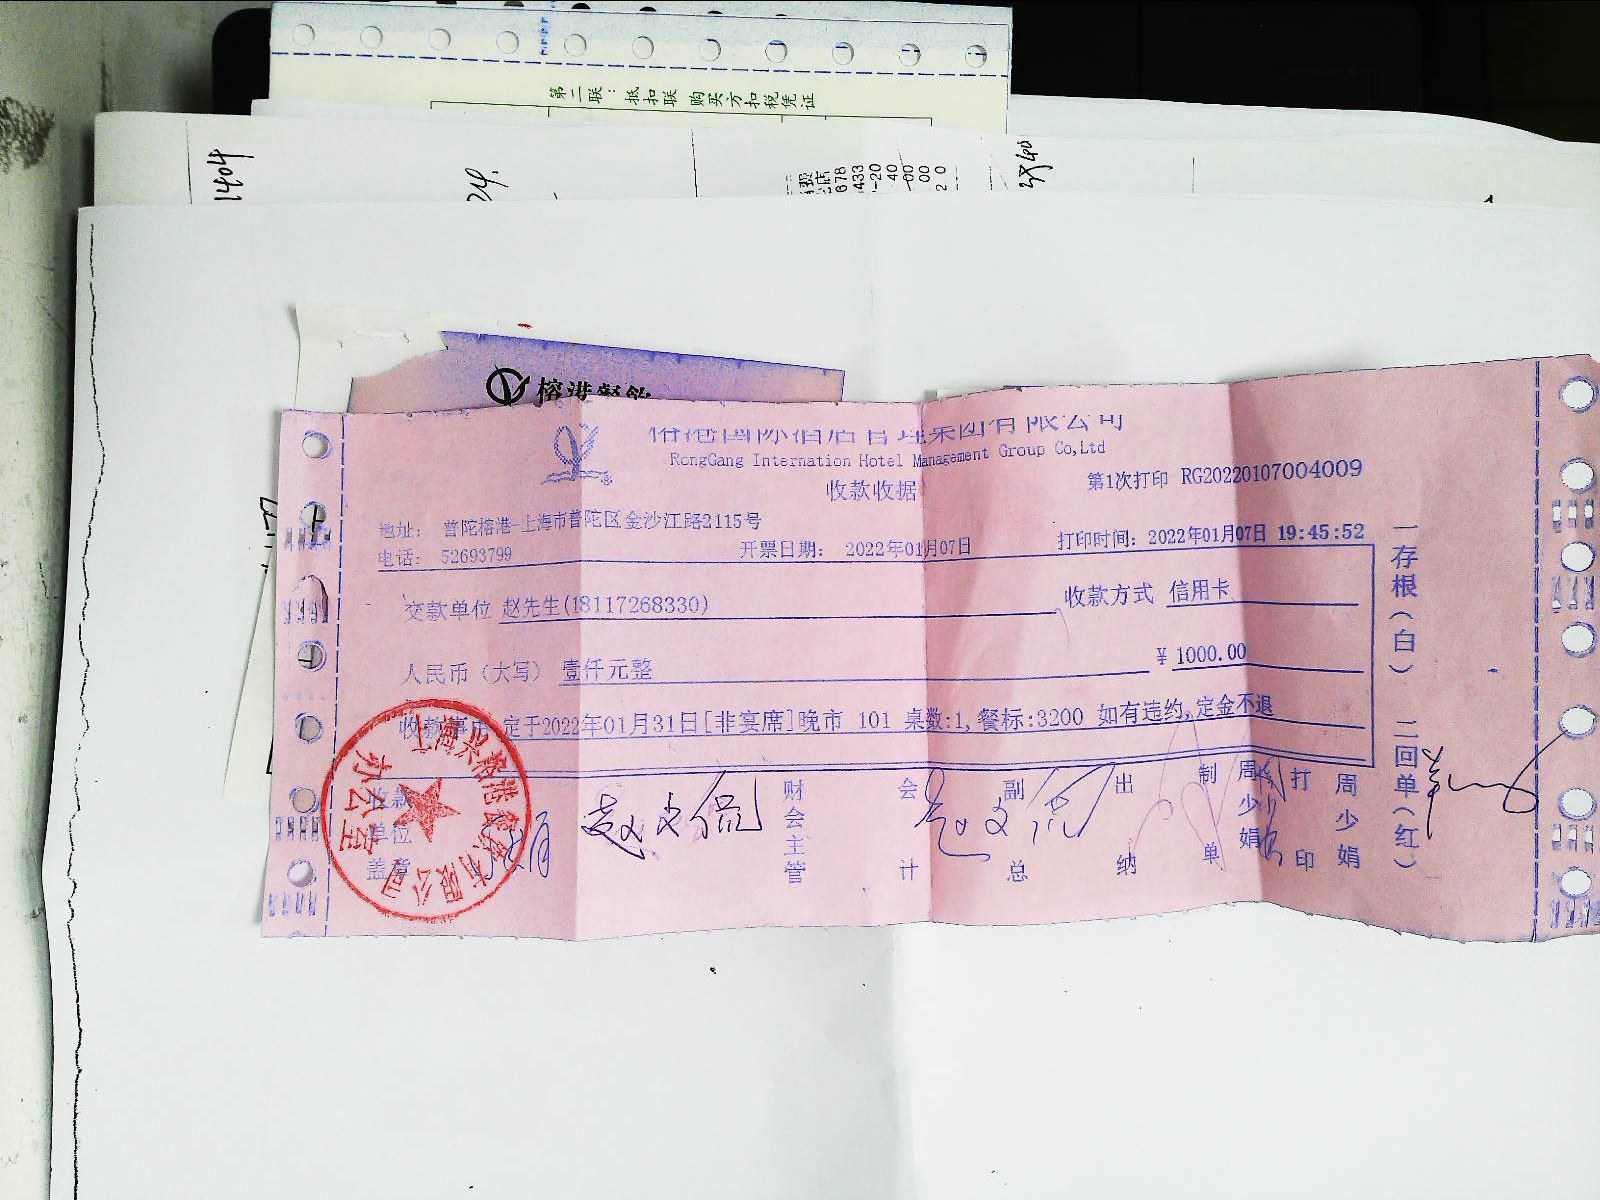 第二联：抵扣联 购买方扣税凭证
1404
24.
678
433
-20
40
-00
00
2 0
榕港餐饮
榕港国际酒店管理集团有限公司
RongGang Internation Hotel Management Group Co,Ltd
收款收据
第1次打印 RG20220107004009
地址： 普陀榕港-上海市普陀区金沙江路2115号
电话： 52693799
开票日期： 2022年01月07日
打印时间：2022年01月07日 19:45:52
交款单位 赵先生(18117268330)
收款方式 信用卡
人民币（大写） 壹仟元整
¥ 1000.00
收款事由 定于2022年01月31日[非宴席]晚市 101 桌数:1,餐标:3200 如有违约,定金不退
收款单位盖章
财会主管
会计
副总
出纳
制单
周少娟
打印
周少娟
一存根（白） 二回单（红）
餐饮有限公司
办公室